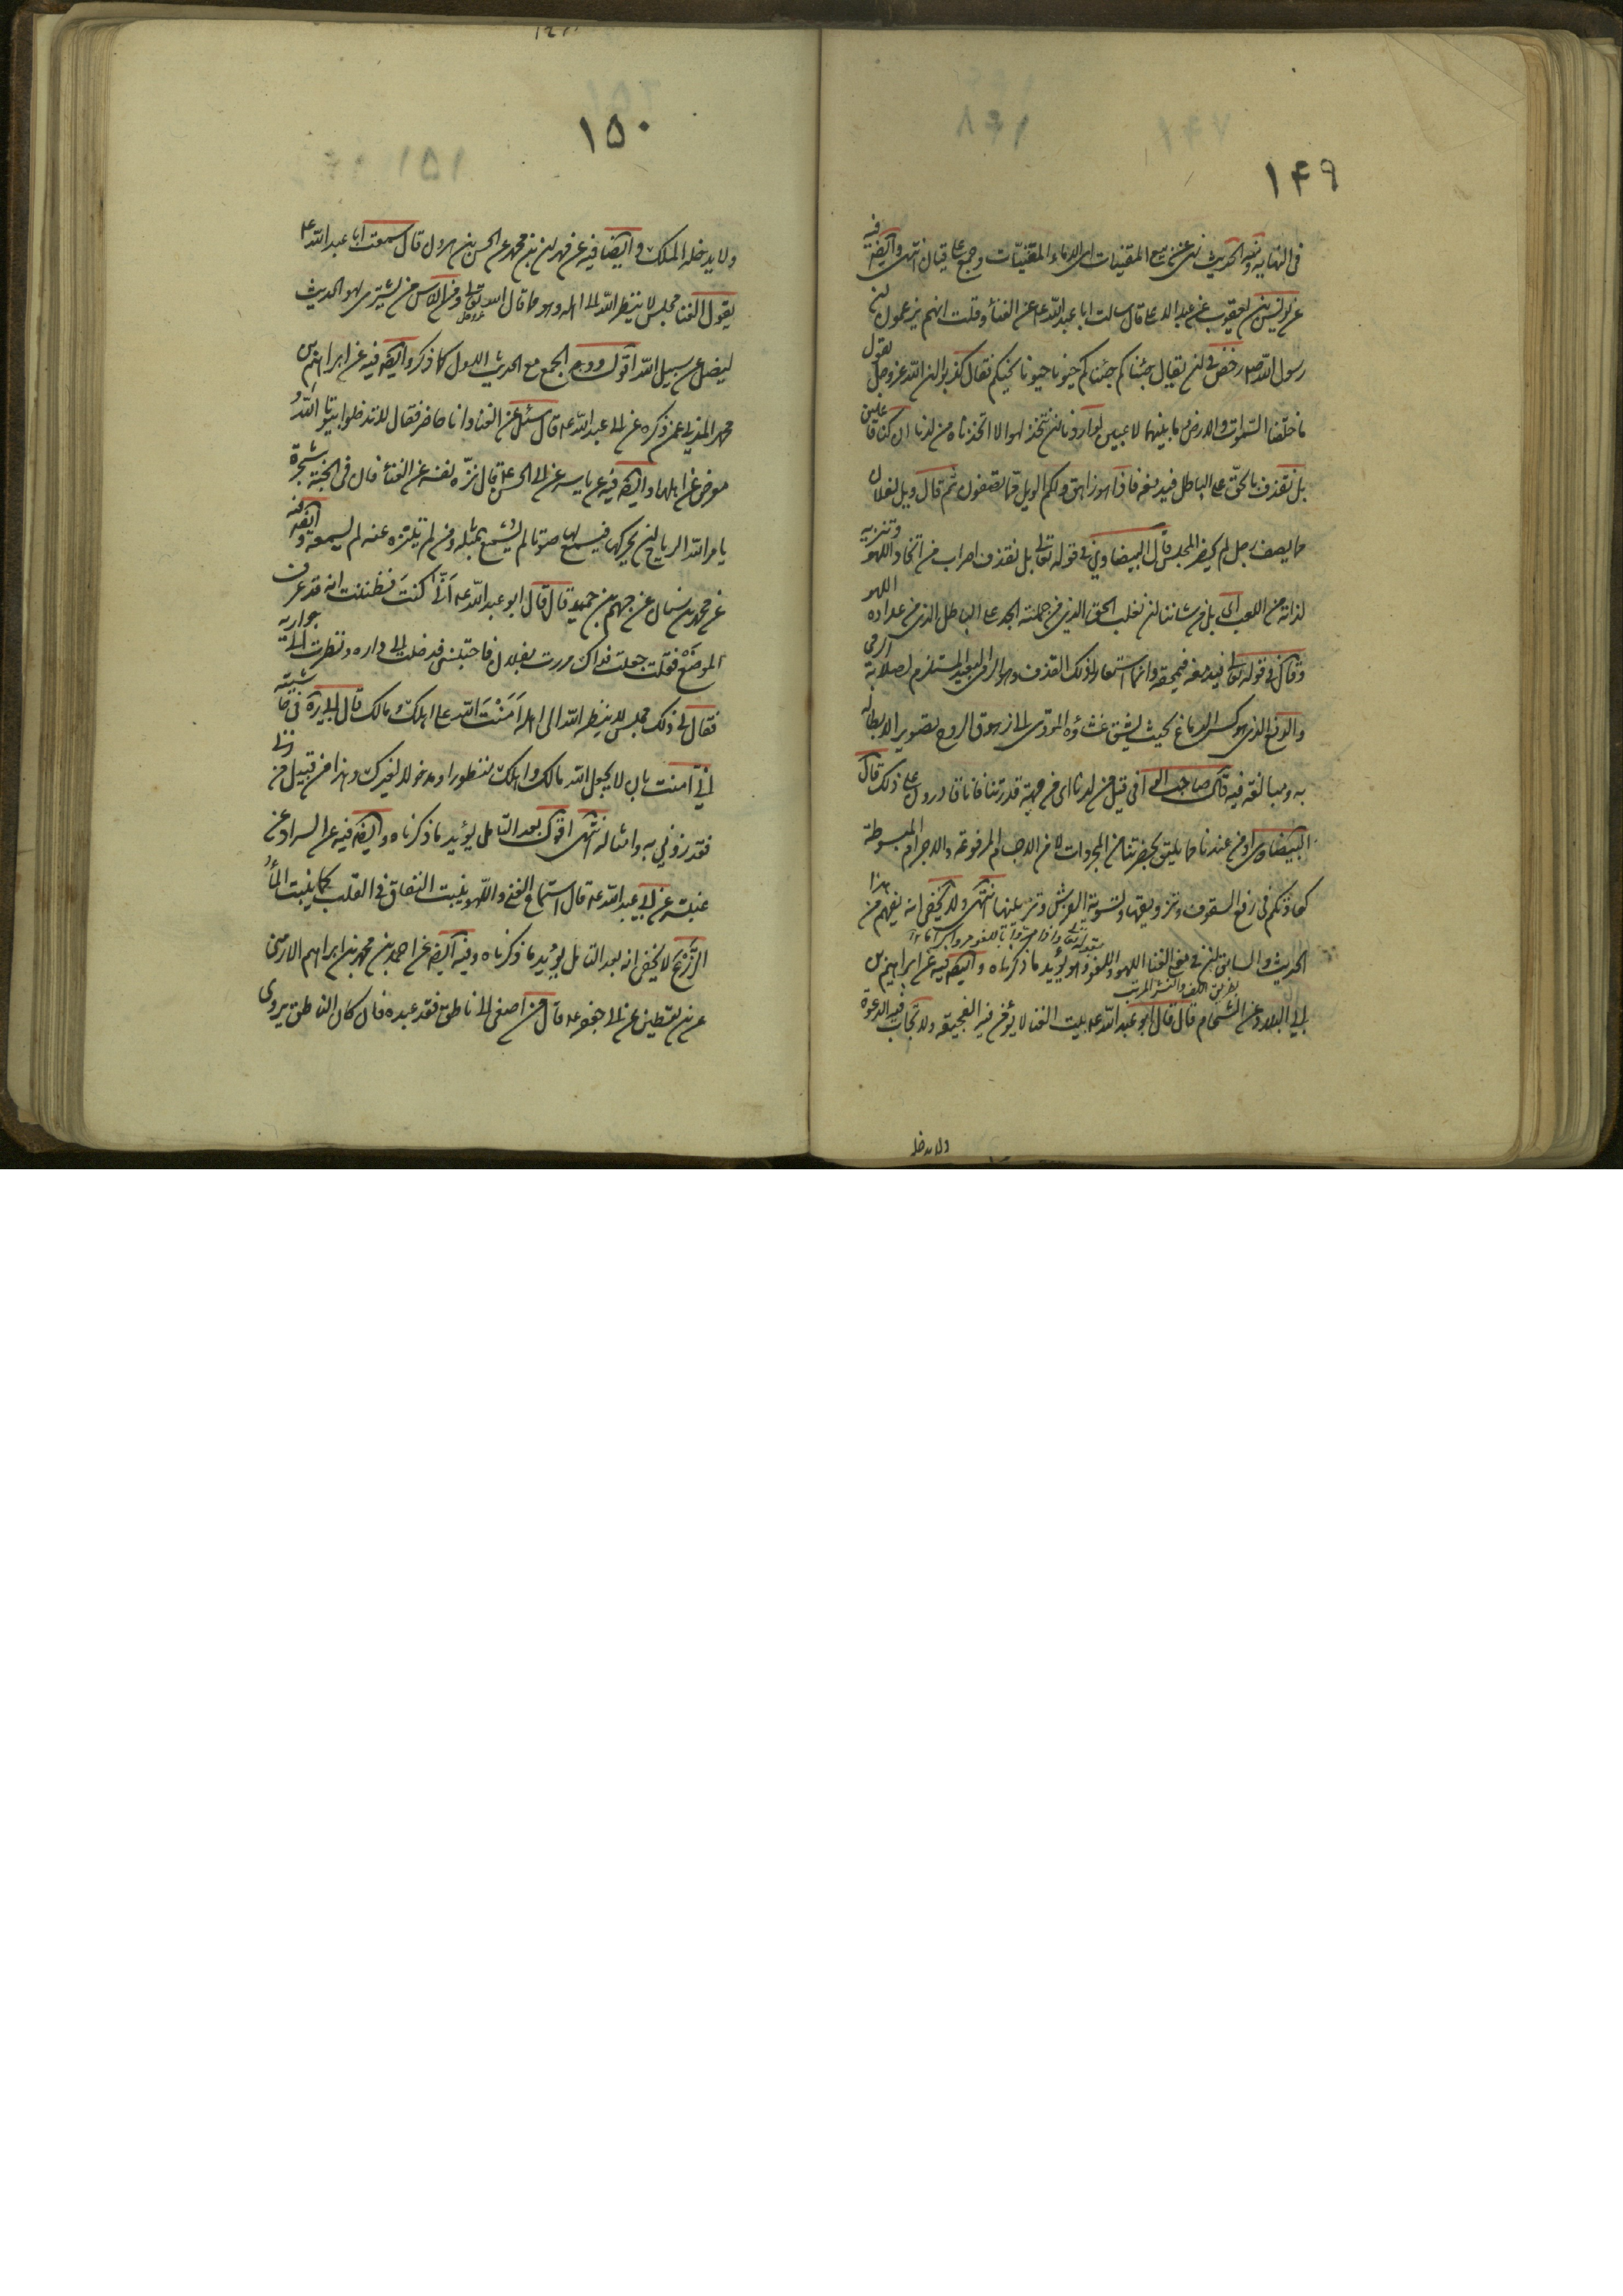 ١۴٩
فى النهايه وفيه الحديث نهى عن بيع المقينات اى الاماء المغنيات وجمع على قيان انتهى وايضا فيه
عن يونس بن يعقوب عن عبد الاعلى قال سالت ابا عبد الله ع عن الغناء وقلت انهم يزعمون ان
رسول الله ص رخص فى ان يقال جئناكم جئناكم حيونا حيونا نحيكم فقال كذبوا ان الله عز وجل يقول
ما خلقنا السموات والارض وما بينهما لاعبين لو اردنا ان نتخذ لهوا لاتخذناه من لدنا ان كنا فاعلين
بل نقذف بالحق على الباطل فيدمغه فاذا هو زاهق ولكم الويل مما تصفون ثم قال ويل لفلان
مما يصف رجل لم يحضر المجلس قال البيضاوى فى قوله تعالى بل نقذف اضراب من اتخاذ اللهو وتنزيه
لذاته من اللعب اى بل من شاننا ان نغلب الحق الذى من جملته الجد على الباطل الذى من عداده اللهو
وقال فى قوله تعالى فيدمغه فيمحقه وانما استعار لذلك القذف وهو الرمى البعيد المستلزم لصلابة المرمى
والدمغ الذى هو كسر الدماغ بحيث يشق غشاؤه المؤدى الى زهوق الروح تصويرا لابطاله
به ومبالغة فيه قال صاحب الوافى قيل من لدنا اى من جهة قدرتنا فانا قادرون على ذلك قال
البيضاوى او من عندنا مما يليق بحضرتنا من المجردات لا من الاجسام المرفوعة والاجرام المبسوطة
كعادتكم فى رفع السقوف وتزويقها وتسوية الفرش وتزيينها انتهى ولا يخفى انه يفهم من هذا
بقوله تعالى واذا مروا باللغو مروا كراما
الحديث والسابق ان فى معنى الغنا اللهو واللغو وهو يؤيد ما ذكرناه وايضا فيه عن ابراهيم بن
بطريق اللف والنشر المرتب
ابى البلاد وعن الشحام قال قال ابو عبد الله ع بيت الغنا لا يؤمن فيه الفجيعة ولا تجاب فيه الدعوة
ولا يدخله
١۵٠
ولا يدخله الملك وايضا فيه عن مهران بن محمد عن الحسن بن هرون قال سمعت ابا عبد الله ع
يقول الغنا مجلس لا ينظر الله الى اهله وهو مما قال الله تعالى ومن الناس من يشترى لهو الحديث
ليضل عن سبيل الله اقول ووجه الجمع مع الحديث الاول كما ذكر وايضا فيه عن ابراهيم بن
محمد المدنى عمن ذكره عن ابى عبد الله ع قال سئل عن الغناء وانا حاضر فقال لا تدخلوا بيوتا الله
معرض عن اهلها وايضا فيه عن ياسر عن ابى الحسن ع قال من نزه نفسه عن الغناء فان فى الجنة شجرة
يامر الله الرياح ان يحركها فيسمع لها صوتا لم يسمع بمثله ومن لم يتنزه عنه لم يسمعه وايضا فيه
عن محمد بن سنان عن جهم بن حميد قال قال ابو عبد الله ع انى كنت فظننت انه قد عرف
الموضع فقلت جعلت فداك مررت بفلان فاحتبسنى فدخلت الى داره ونظرت الى جواريه
فقال لى ذلك مجلس لا ينظر الله الى اهله امنت الله على اهلك ومالك
انى امنت بان لا يجعل الله مالك واهلك
انتهى اقول بعد التامل يؤيد ما ذكرناه وايضا فيه عن السراد عن
عنبسة عن ابى عبد الله ع قال استماع الغنى واللهو ينبت النفاق فى القلب كما ينبت الماء
الزرع لا يخفى انه بعد التامل يؤيد ما ذكرناه وفيه ايضا عن احمد بن محمد بن ابراهيم الارمنى
عن بن يقطين عن ابى جعفر ع قال من اصغى الى ناطق فقد عبده فان كان الناطق يروى